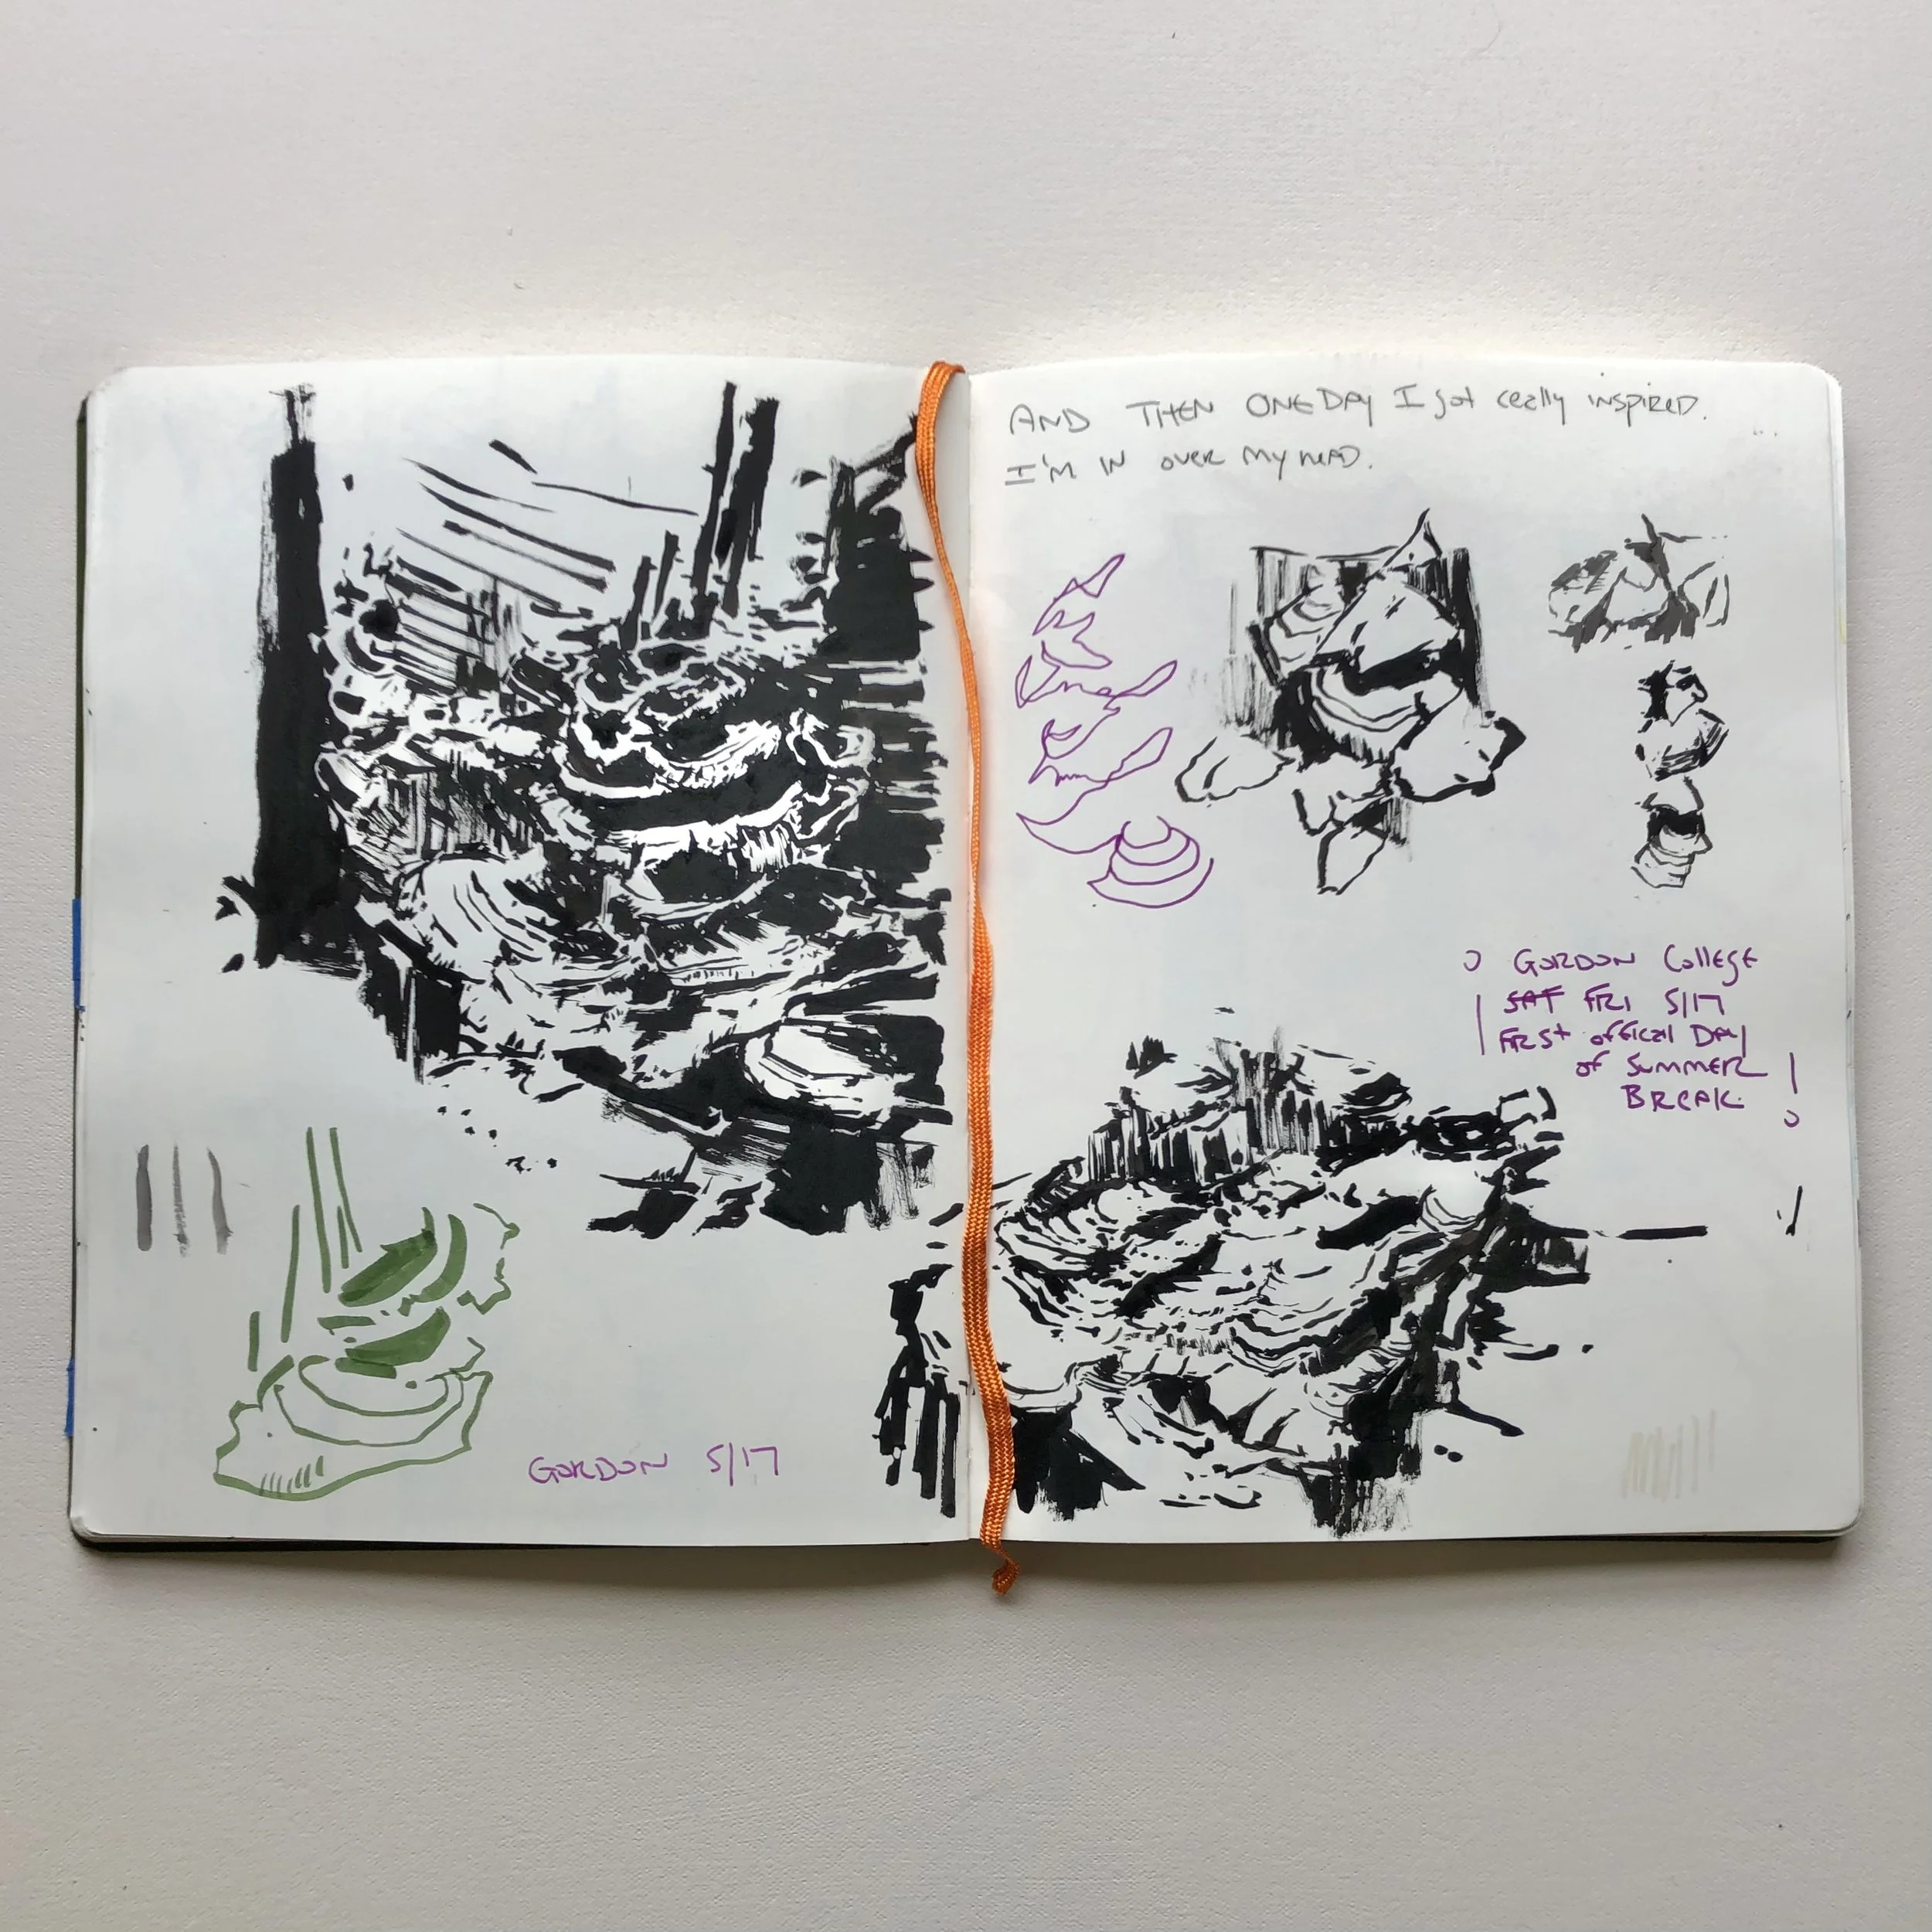 GORDON 5/17
AND THEN ONE DAY I got really inspired.
I'M IN over my head.
GORDON College
SAT FRI 5/17
First offical Day
of Summer
Break.